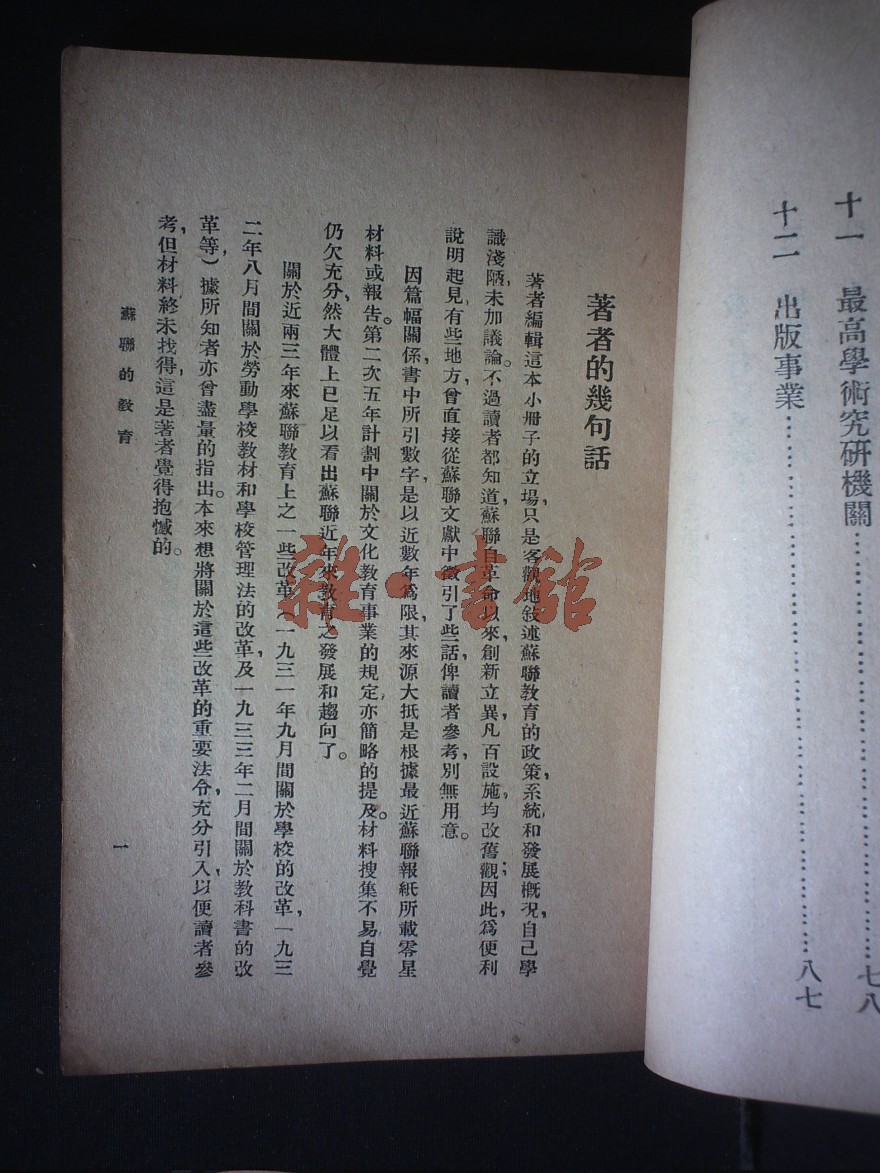 十一 最高學術究研機關……………………七八
十二 出版事業……………………八七
著者的幾句話
著者編輯這本小册子的立場，只是客觀地敍述蘇聯教育的政策，系統和發展槪况，自己學
識淺陋，未加議論。不過讀者都知道，蘇聯自革命以來，創新立異，凡百設施，均改舊觀；因此，爲便利
說明起見，有些地方，曾直接從蘇聯文獻中徵引了些話，俾讀者參考，別無用意。
因篇幅關係，書中所引數字，是以近數年爲限，其來源大抵是根據最近蘇聯報紙所載零星
材料或報告。第二次五年計劃中關於文化教育事業的規定，亦簡略的提及。材料搜集不易，自覺
仍欠充分，然大體上已足以看出蘇聯近年來教育之發展和趨向了。
關於近兩三年來蘇聯教育上之一些改革（一九三一年九月間關於學校的改革，一九三
二年八月間關於勞動學校教材和學校管理法的改革，及一九三三年二月間關於教科書的改
革等）據所知者亦曾盡量的指出。本來想將關於這些改革的重要法令，充分引入，以便讀者參
考，但材料終未找得，這是著者覺得抱憾的。
蘇聯的教育
一
雜·書館